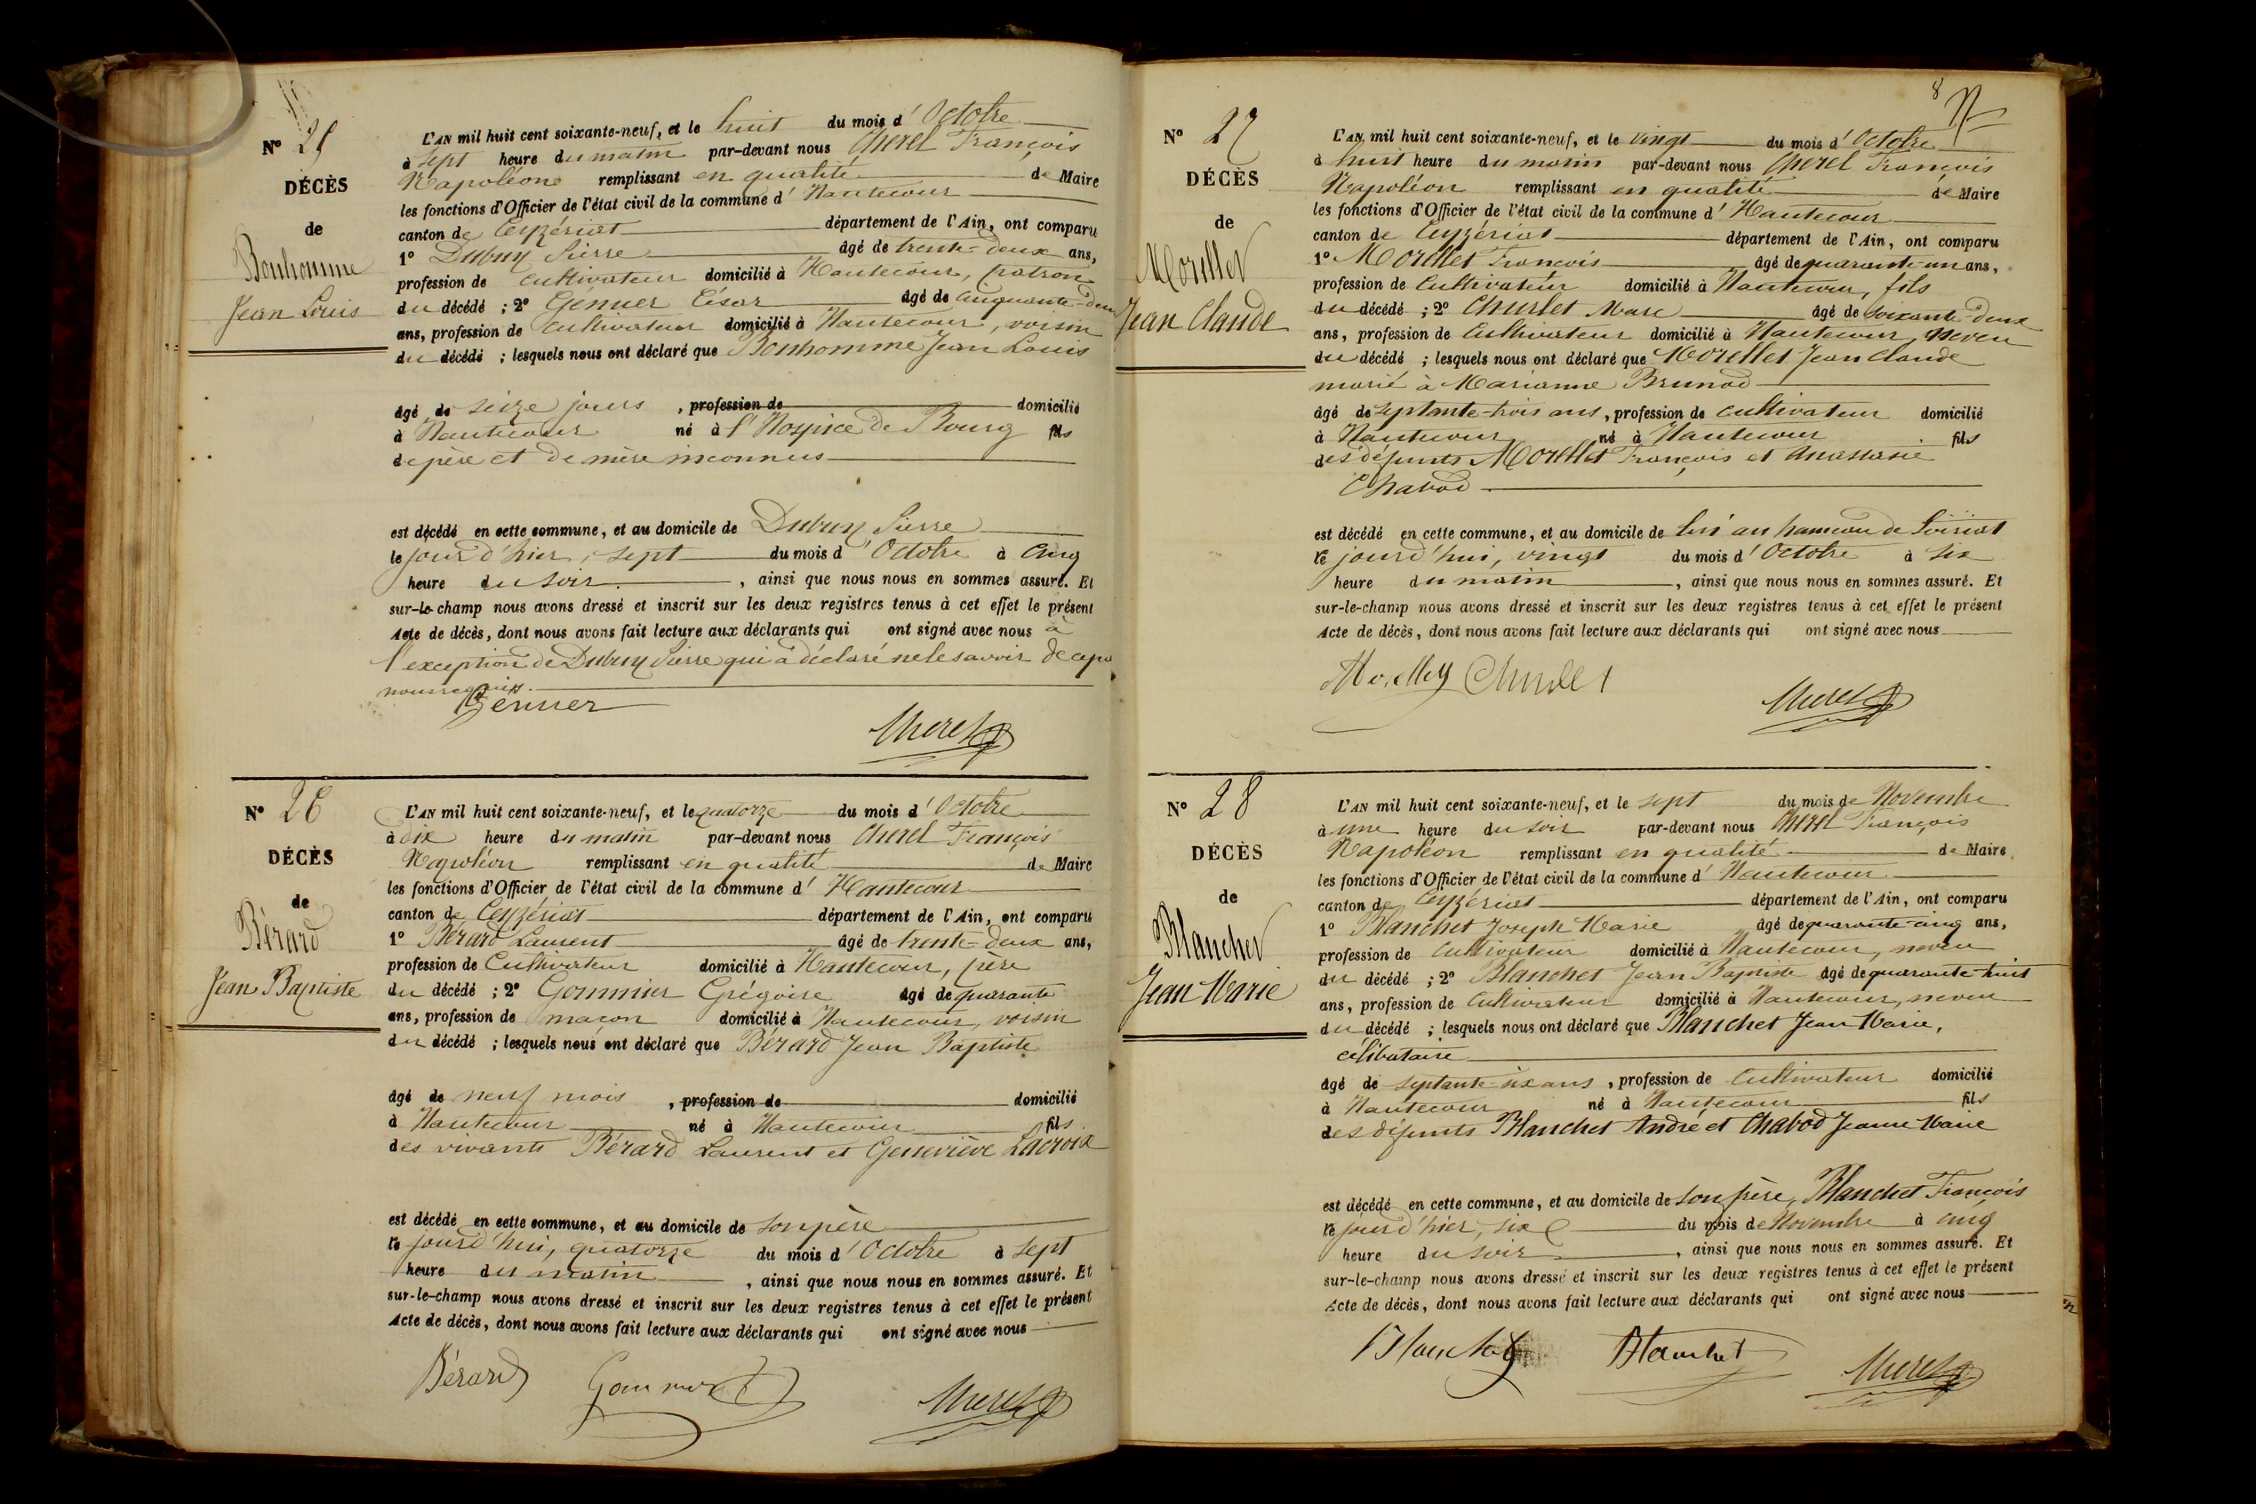 N° 25
DÉCÈS
de
Bonhomme
Jean Louis
L'AN mil huit cent soixante-neuf, et le huit du mois d'Octobre
à sept heure du matin par-devant nous Cherel François
Napoléon remplissant en qualité de Maire
les fonctions d'Officier de l'état civil de la commune d'Hautecour
canton de Ceyzériat département de l'Ain, ont comparu
1° Dubuy Pierre âgé de trente-deux ans,
profession de cultivateur domicilié à Hautecour, patron
du décédé ; 2° Génuer César âgé de cinquante-deux
ans, profession de cultivateur domicilié à Hautecour, voisin
du décédé ; lesquels nous ont déclaré que Bonhomme Jean Louis
âgé de seize jours , profession de domicilié
à Hautecour né à l'Hospice de Bourg fils
de père et de mère inconnus
est décédé en cette commune, et au domicile de Dubuy Pierre
le jour d'hier, sept du mois d'Octobre à cinq
heure du soir , ainsi que nous nous en sommes assuré. Et
sur-le-champ nous avons dressé et inscrit sur les deux registres tenus à cet effet le présent
Acte de décès, dont nous avons fait lecture aux déclarants qui ont signé avec nous à
l'exception de Dubuy Pierre qui a déclaré ne le savoir de ce par
nous requis.
Génuer
Cherel
N° 26
DÉCÈS
de
Bérard
Jean Baptiste
L'AN mil huit cent soixante-neuf, et le quatorze du mois d'Octobre
à dix heure du matin par-devant nous Cherel François
Napoléon remplissant en qualité de Maire
les fonctions d'Officier de l'état civil de la commune d'Hautecour
canton de Ceyzériat département de l'Ain, ont comparu
1° Bérard Laurent âgé de trente-deux ans,
profession de Cultivateur domicilié à Hautecour, père
du décédé ; 2° Gommier Grégoire âgé de quarante
ans, profession de maçon domicilié à Hautecour, voisin
du décédé ; lesquels nous ont déclaré que Bérard Jean Baptiste
âgé de neuf mois , profession de domicilié
à Hautecour né à Hautecour fils
des vivants Bérard Laurent et Geneviève Lacroix
est décédé en cette commune, et au domicile de son père
le jourd'hui, quatorze du mois d'Octobre à sept
heure du matin , ainsi que nous nous en sommes assuré. Et
sur-le-champ nous avons dressé et inscrit sur les deux registres tenus à cet effet le présent
Acte de décès, dont nous avons fait lecture aux déclarants qui ont signé avec nous
Bérard Gommier Cherel
8
N° 27
DÉCÈS
de
Morellet
Jean Claude
L'AN mil huit cent soixante-neuf, et le vingt du mois d'Octobre
à huit heure du matin par-devant nous Cherel François
Napoléon remplissant en qualité de Maire
les fonctions d'Officier de l'état civil de la commune d'Hautecour
canton de Ceyzériat département de l'Ain, ont comparu
1° Morellet François âgé de quarante-un ans,
profession de Cultivateur domicilié à Hautecour, fils
du décédé ; 2° Churlet Marc âgé de soixante-deux
ans, profession de Cultivateur domicilié à Hautecour, neveu
du décédé ; lesquels nous ont déclaré que Morellet Jean Claude
marié à Marianne Brunod
âgé de septante-trois ans, profession de cultivateur domicilié
à Hautecour né à Hautecour fils
des défunts Morellet François et Anastasie
Chabod
est décédé en cette commune, et au domicile de lui au hameau de Poisiat
le jourd'hui, vingt du mois d'Octobre à six
heure du matin , ainsi que nous nous en sommes assuré. Et
sur-le-champ nous avons dressé et inscrit sur les deux registres tenus à cet effet le présent
Acte de décès, dont nous avons fait lecture aux déclarants qui ont signé avec nous
Churlet
Cherel
N° 28
DÉCÈS
de
Blanchet
Jean Marie
L'AN mil huit cent soixante-neuf, et le sept du mois de Novembre
à une heure du soir par-devant nous Cherel François
Napoléon remplissant en qualité de Maire
les fonctions d'Officier de l'état civil de la commune d'Hautecour
canton de Ceyzériat département de l'Ain, ont comparu
1° Blanchet Joseph Marie âgé de quarante-cinq ans,
profession de Cultivateur domicilié à Hautecour, neveu
du décédé ; 2° Blanchet Jean Baptiste âgé de quarante-huit
ans, profession de Cultivateur domicilié à Hautecour, neveu
du décédé ; lesquels nous ont déclaré que Blanchet Jean Marie,
célibataire
âgé de septante-six ans , profession de Cultivateur domicilié
à Hautecour né à Hautecour fils
des défunts Blanchet André et Chabod Jeanne Marie
est décédé en cette commune, et au domicile de son frère, Blanchet François
le jour d'hier, six du mois de Novembre à cinq
heure du soir , ainsi que nous nous en sommes assuré. Et
sur-le-champ nous avons dressé et inscrit sur les deux registres tenus à cet effet le présent
Acte de décès, dont nous avons fait lecture aux déclarants qui ont signé avec nous
Blanchet Blanchet Cherel